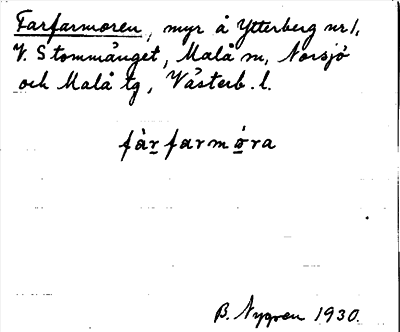 Farfarmoren, myr å Ytterberg nr 1,
V. Stommänget, Malå m, Norsjö
och Malå tg, Västerb. l.
fàr farmóra
B. Nygren 1930.